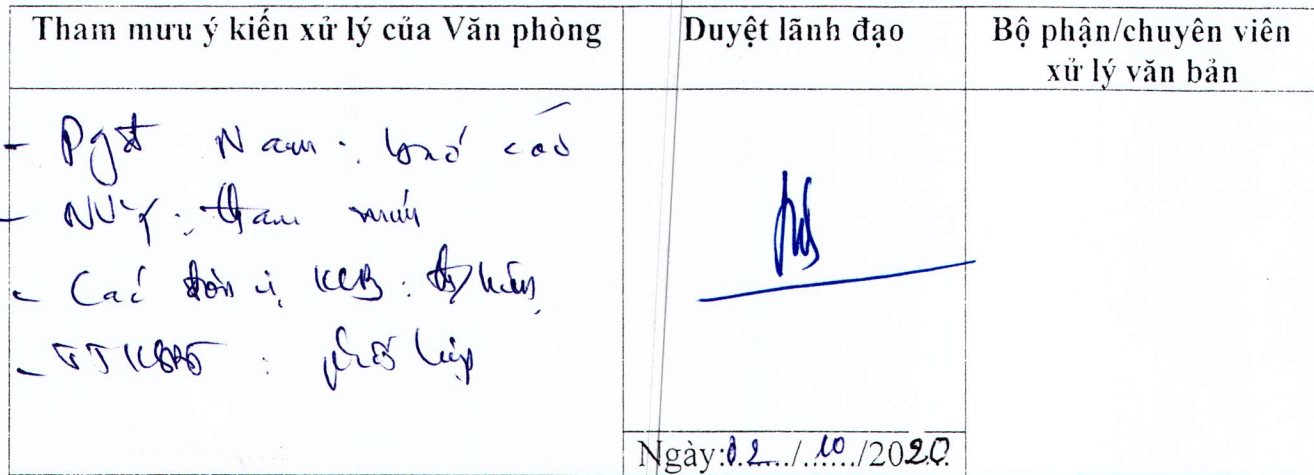 Tham mưu ý kiến xử lý của Văn phòng
Duyệt lãnh đạo
Bộ phận/chuyên viên
xử lý văn bản
- Pgđ Nam: báo cáo
- NVY: tham mưu
- Các đơn vị KCB: t/hiện
- TTKSBT: phối hợp
Ngày: 02/10/2020